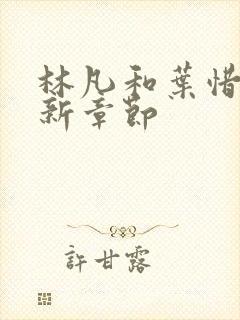 林凡和葉惜
新章節
許甘露